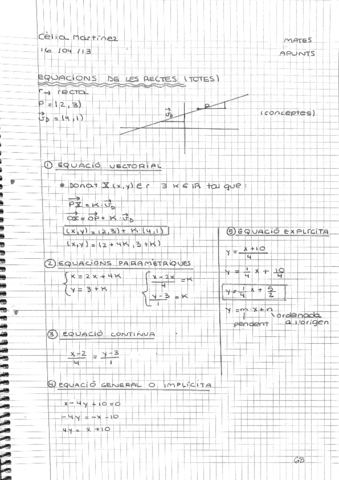 Cèlia Martínez
MATES
16/04/13
APUNTS
EQUACIONS DE LES RECTES (TOTES)
r → recta
P = (2,3)
v⃗D = (4,1)
v⃗D
P
r
(conceptes)
① EQUACIÓ VECTORIAL
• Donat X(x,y) ∈ r ∃ K ∈ ℝ tal que:
PX⃗ = K·v⃗D
OX⃗ = OP⃗ + K·v⃗D
(x,y) = (2,3) + K·(4,1)
(x,y) = (2+4K, 3+K)
② EQUACIONS PARAMÈTRIQUES
x = 2x + 4K
y = 3 + K
x-2x/4 = K
y-3/1 = K
③ EQUACIÓ CONTINUA
x-2/4 = y-3/1
④ EQUACIÓ GENERAL O IMPLÍCITA
x - 4y + 10 = 0
-4y = -x - 10
4y = x + 10
⑤ EQUACIÓ EXPLÍCITA
y = x+10/4
y = 1/4 x + 10/4
y = 1/4 x + 5/2
y = m x + n
ordenada
pendent
a l'origen
68